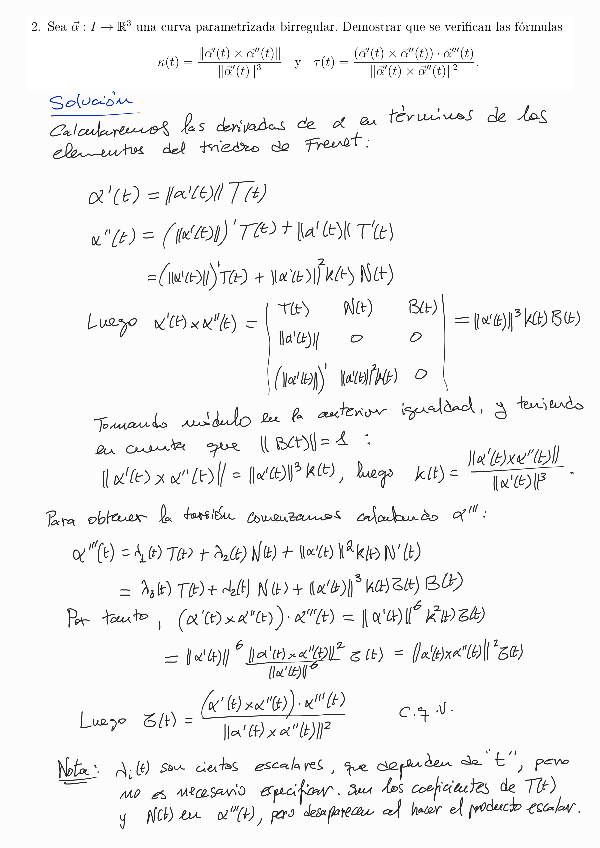 2. Sea α⃗ : I → ℝ³ una curva parametrizada birregular. Demostrar que se verifican las fórmulas
κ(t) = ‖α⃗'(t) × α⃗''(t)‖ / ‖α⃗'(t)‖³ y τ(t) = (α⃗'(t) × α⃗''(t)) · α⃗'''(t) / ‖α⃗'(t) × α⃗''(t)‖².
Solución
Calcularemos las derivadas de α en términos de los
elementos del triedro de Frenet:
α'(t) = ‖α'(t)‖ T(t)
α''(t) = (‖α'(t)‖)' T(t) + ‖α'(t)‖ T'(t)
= (‖α'(t)‖)' T(t) + ‖α'(t)‖² k(t) N(t)
Luego α'(t) × α''(t) = | T(t) N(t) B(t) ; ‖α'(t)‖ 0 0 ; (‖α'(t)‖)' ‖α'(t)‖² k(t) 0 | = ‖α'(t)‖³ k(t) B(t)
Tomando módulo en la anterior igualdad, y teniendo
en cuenta que ‖B(t)‖ = 1 :
‖α'(t) × α''(t)‖ = ‖α'(t)‖³ k(t), luego k(t) = ‖α'(t) × α''(t)‖ / ‖α'(t)‖³ .
Para obtener la torsión comenzamos calculando α''' :
α'''(t) = λ₁(t) T(t) + λ₂(t) N(t) + ‖α'(t)‖² k(t) N'(t)
= λ₃(t) T(t) + λ₂(t) N(t) + ‖α'(t)‖³ k(t) τ(t) B(t)
Por tanto, (α'(t) × α''(t)) · α'''(t) = ‖α'(t)‖⁶ k²(t) τ(t)
= ‖α'(t)‖⁶ ‖α'(t) × α''(t)‖² / ‖α'(t)‖⁶ τ(t) = ‖α'(t) × α''(t)‖² τ(t)
Luego τ(t) = (α'(t) × α''(t)) · α'''(t) / ‖α'(t) × α''(t)‖² c.q.v.
Nota: λᵢ(t) son ciertos escalares, que dependen de "t", pero
no es necesario especificar. Son los coeficientes de T(t)
y N(t) en α'''(t), pero desaparecen al hacer el producto escalar.